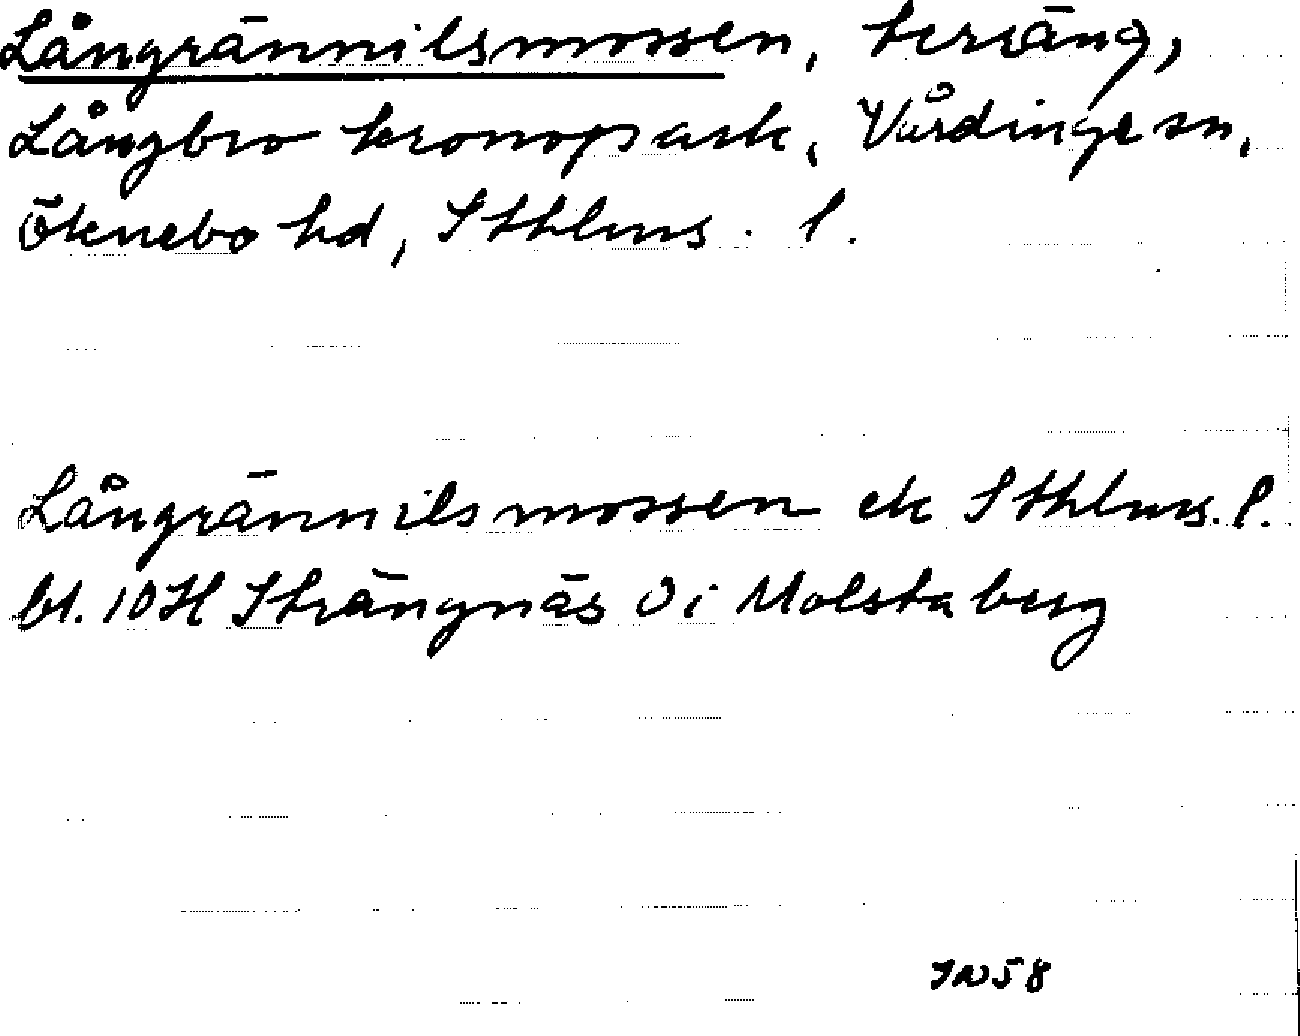 Långrännilsmossen, terräng,
Långbro kronopark, Vårdinge sn,
Öknebo hd, Sthlms. l.
Långrännilsmossen ek Sthlms. l.
bl. 10H Strängnäs 0i Molstaberg